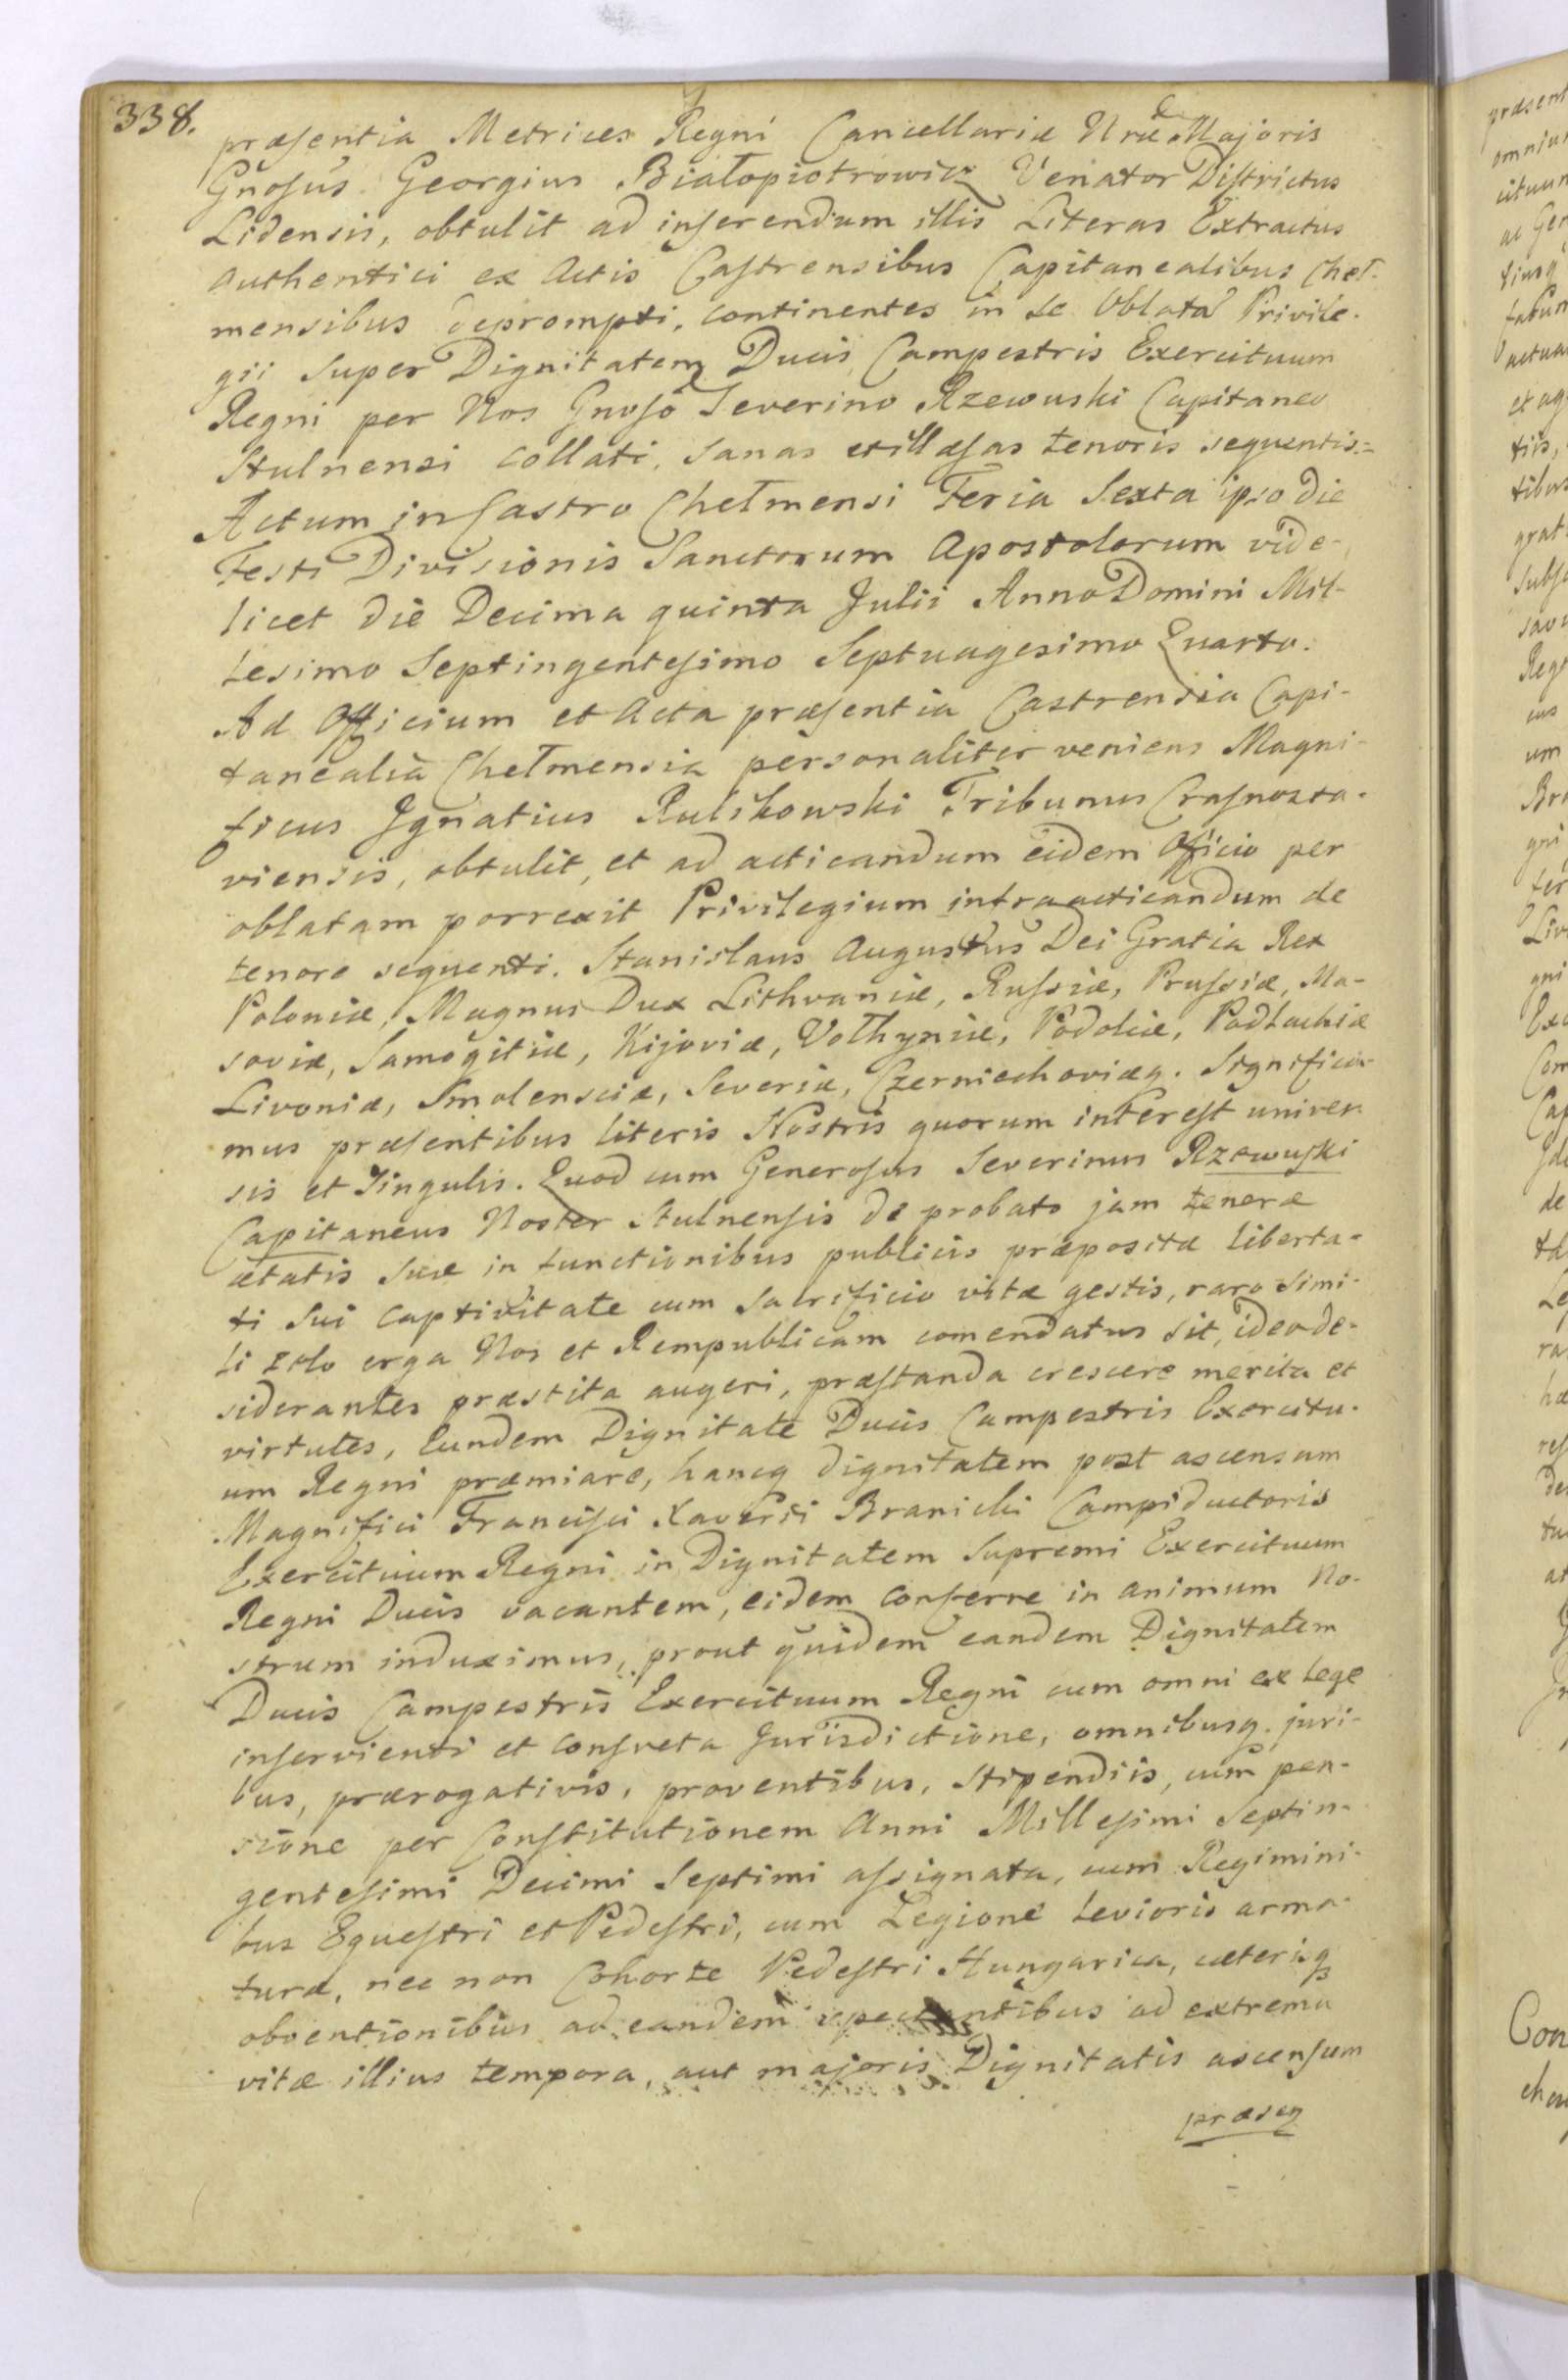 338.
præsentia Metrices Regni Cancellariæ Nræ Majoris
Gnosus Georgius Białopiotrowicz Venator Districtus
Lidensis, obtulit ad inserendum illis Literas Extractus
Authentici ex Actis Castrensibus Capitanealibus Cheł-
mensibus deprompti, continentes in se Oblatã Privile-
gii super Dignitatem Ducis Campestris Exercituum
Regni per Nos Gnoso Severino Rzewuski Capitaneo
Stulnensi collati, sanas et illæsas tenoris sequentis:=
Actum in Castro Chełmensi Feria Sexta ipso die
Festi Divisionis Sanctorum Apostolorum vide-
licet die Decima quinta Julii Anno Domini Mil-
lesimo Septingentesimo Septuagesimo Quarto.
Ad Officium et Acta præsentia Castrensia Capi-
tanealia Chełmensia personaliter veniens Magni-
ficus Ignatius Rulikowski Tribunus Crasnosta-
viensis, obtulit, et ad acticandum eidem Officio per
oblatam porrexit Privilegium infra acticandum de
tenore sequenti. Stanislaus Augustus Dei Gratia Rex
Poloniæ, Magnus Dux Lithvaniæ, Russiæ, Prussiæ, Ma-
soviæ, Samogitiæ, Kijoviæ, Vołhyniæ, Podoliæ, Podlachiæ
Livoniæ, Smolensciæ, Severiæ, Czerniechoviæq. Significa-
mus præsentibus literis Nostris quorum interest univer
sis et singulis. Quod cum Generosus Severinus Rzewuski
Capitaneus Noster Stulnensis de probato jam teneræ
ætatis suæ in functionibus publicis præposita liberta-
ti sui captivitate cum sacrificio vitæ gestis, raro simi-
li zelo erga Nos et Rempublicam comendatus sit, ideo de-
siderantes præstita augeri, præstanda crescere merita et
virtutes, Eundem Dignitate Ducis Campestris Exercitu-
um Regni præmiare, hancq dignitatem post ascensum
Magnifici Francisci Xaverii Branicki Campiductoris
Exercituum Regni in Dignitatem Supremi Exercituum
Regni Ducis vacantem, eidem conferre in animum No-
strum induximus, prout quidem eandem Dignitatem
Ducis Campestris Exercituum Regni cum omni ex lege
inservienti et consveta Jurisdictione, omnibusq. juri-
bus, prærogativis, proventibus, stipendiis, cum pen-
sione per Constitutionem Anni Millesimi Septin-
gentesimi Decimi Septimi assignata, cum Regimini-
bus Equestri et Pedestri, cum Legione levioris arma-
turæ, nec non Cohorte Pedestri Hungarica, cæterisq
obventionibus ad eandem spectantibus ad extrema
vitæ illius tempora, aut majoris Dignitatis ascensum
præseq